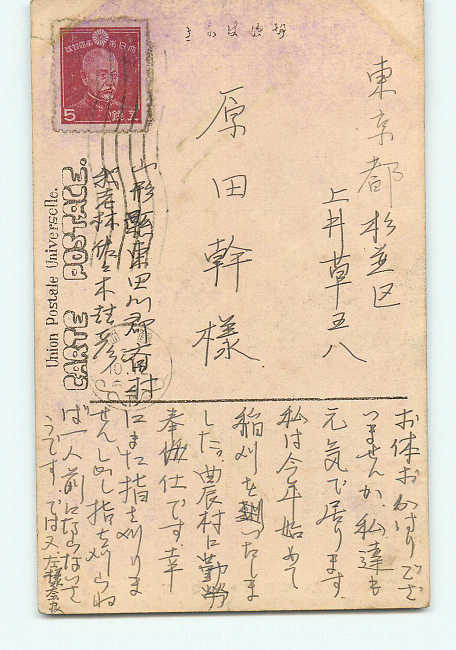 きかは便郵
東京都杉並区
上井草五八
原田幹様
山形縣東田川郡
佐々木
大日本帝国郵便
5
五銭
Union Postale Universelle.
CARTE POSTALE.
お体おかはりござ
いませんか、私達も
元気で居ります。
私は今年始めて
稲刈を
した。農村に勤労
奉仕です。幸
にまだ指を刈りま
せん。しかし指を刈らね
ば一人前にならないさ
うです。では又、